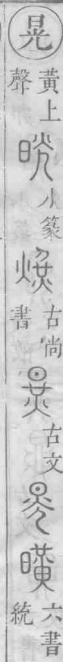 晃
黃上聲
小篆
古尚書
古文
六書統